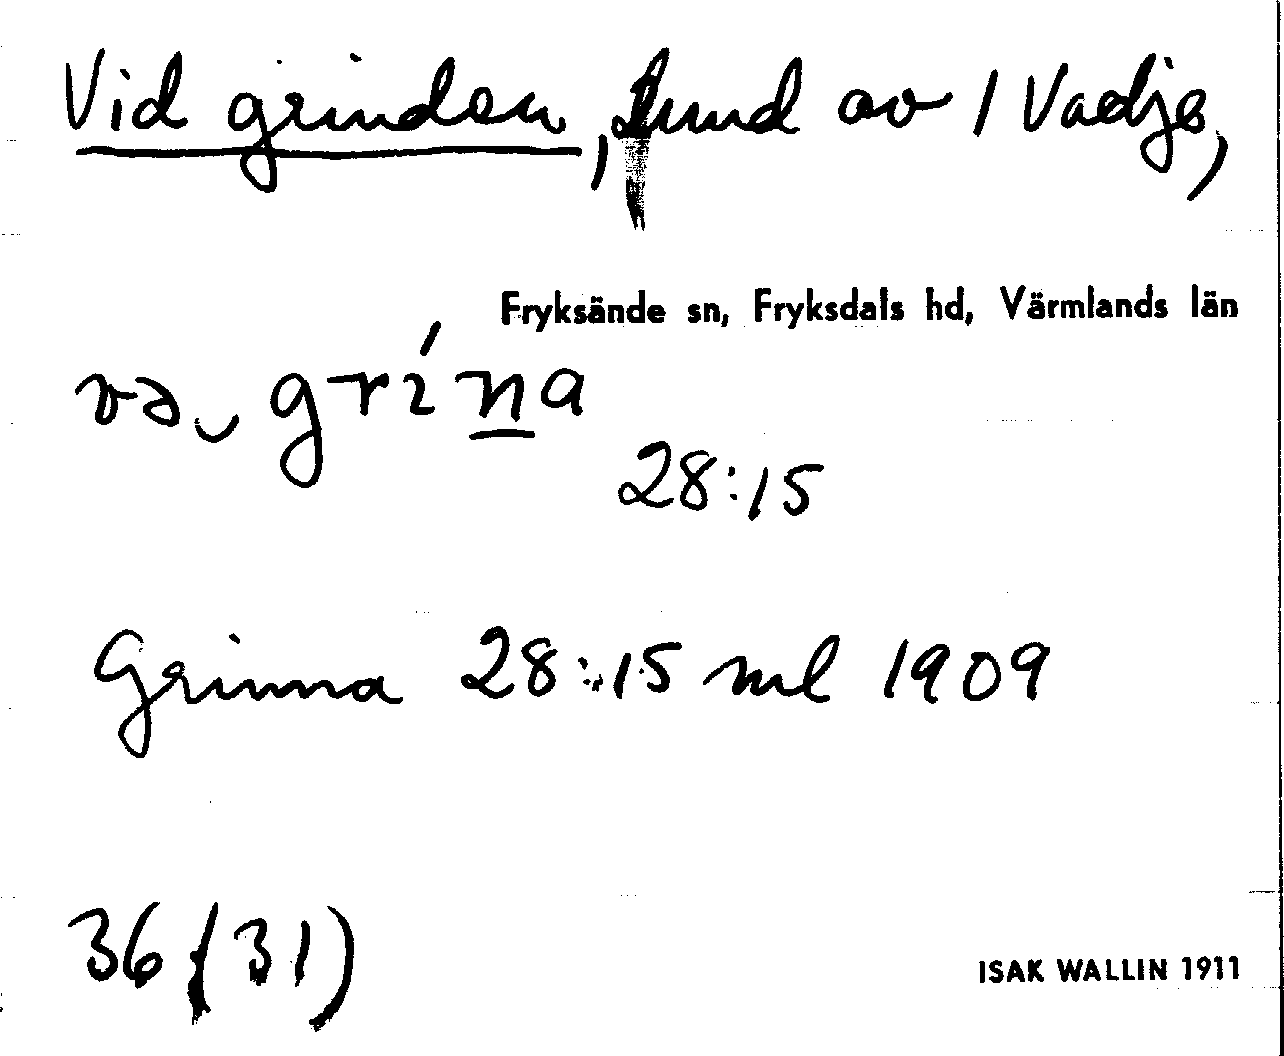 Vid grinden, Lund av 1 Vadje,
Fryksände sn, Fryksdals hd, Värmlands län
və‿ grína
28:15
Grinna 28:15 ml 1909
36 (31)
ISAK WALLIN 1911